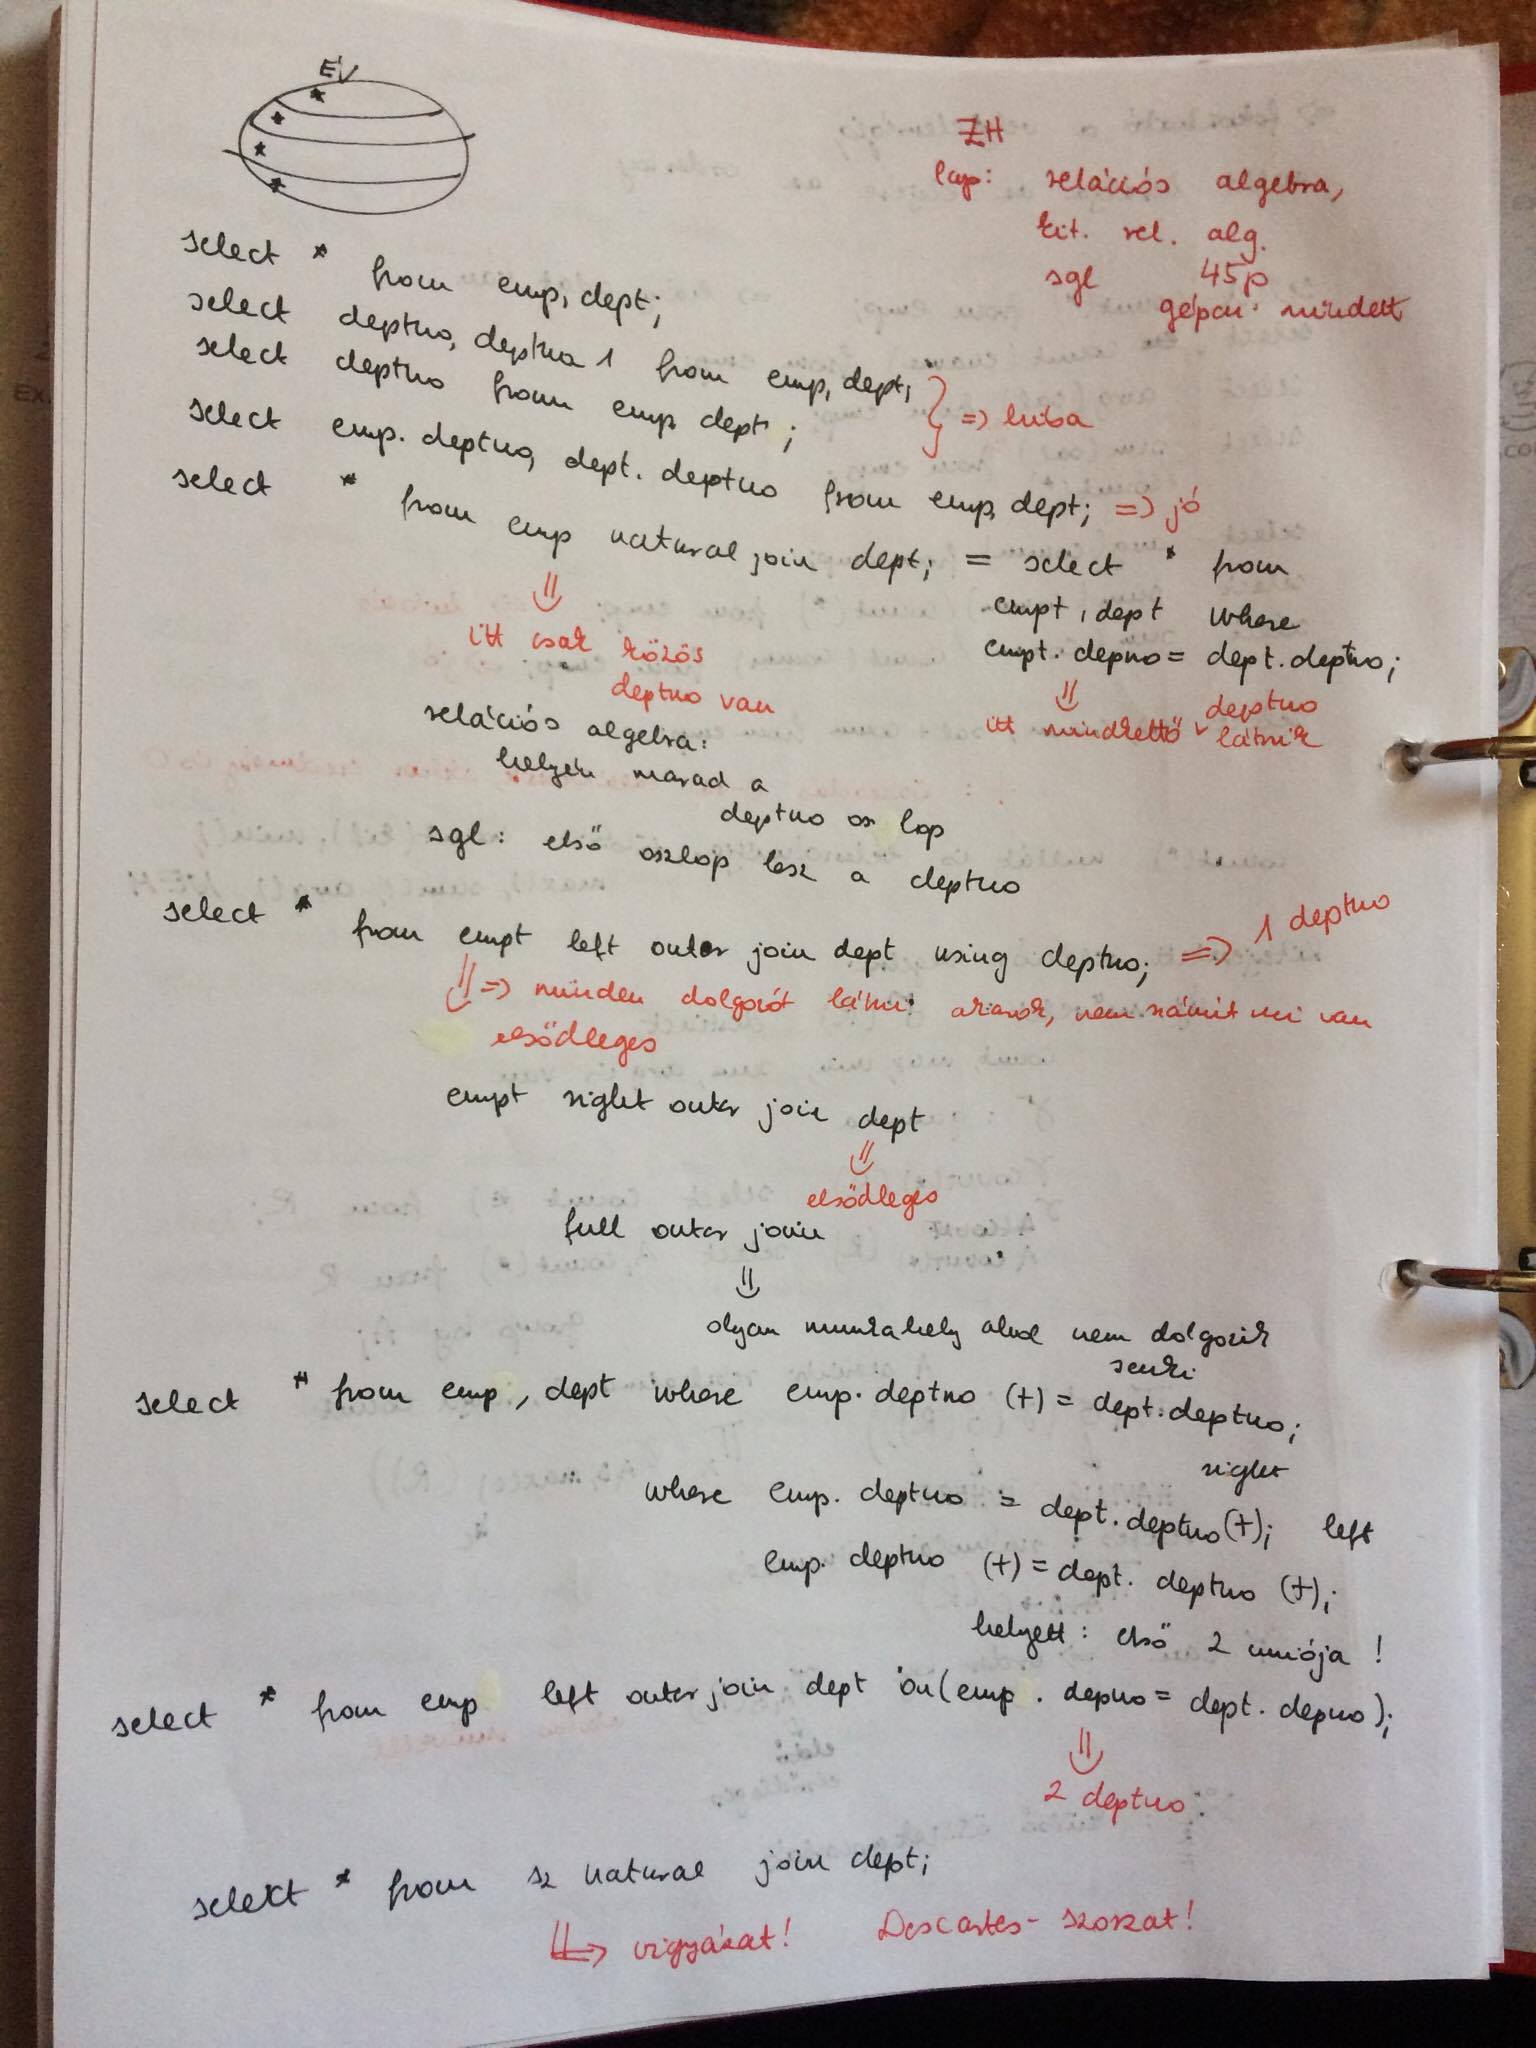 ÉV
ZH
lap: relációs algebra,
kit. rel. alg.
sql 45p
gépen mindett
select * from emp, dept;
select deptno, deptno 1 from emp, dept;
select deptno from emp dept; => hiba
select emp.deptno, dept.deptno from emp, dept; => jó
select * from emp natural join dept; = select * from
empt, dept where
empt.depno = dept.deptno;
itt csak közös
deptno van
itt mindkettő deptno
látszik
relációs algebra:
helyén marad a
deptno oszlop
sql: első oszlop lesz a deptno
select * from empt left outer join dept using deptno; => 1 deptno
=> minden dolgozót látni akarok, nem számít mi van
elsődleges
empt right outer join dept
elsődleges
full outer join
olyan munkahely ahol nem dolgozik
senki
select * from emp, dept where emp.deptno (+) = dept.deptno;
right
where emp.deptno = dept.deptno(+); left
emp.deptno (+) = dept.deptno (+);
helyett: első 2 uniója!
select * from emp left outer join dept on(emp.depno = dept.depno);
2 deptno
select * from sz natural join dept;
vigyázat! Descartes-szorzat!